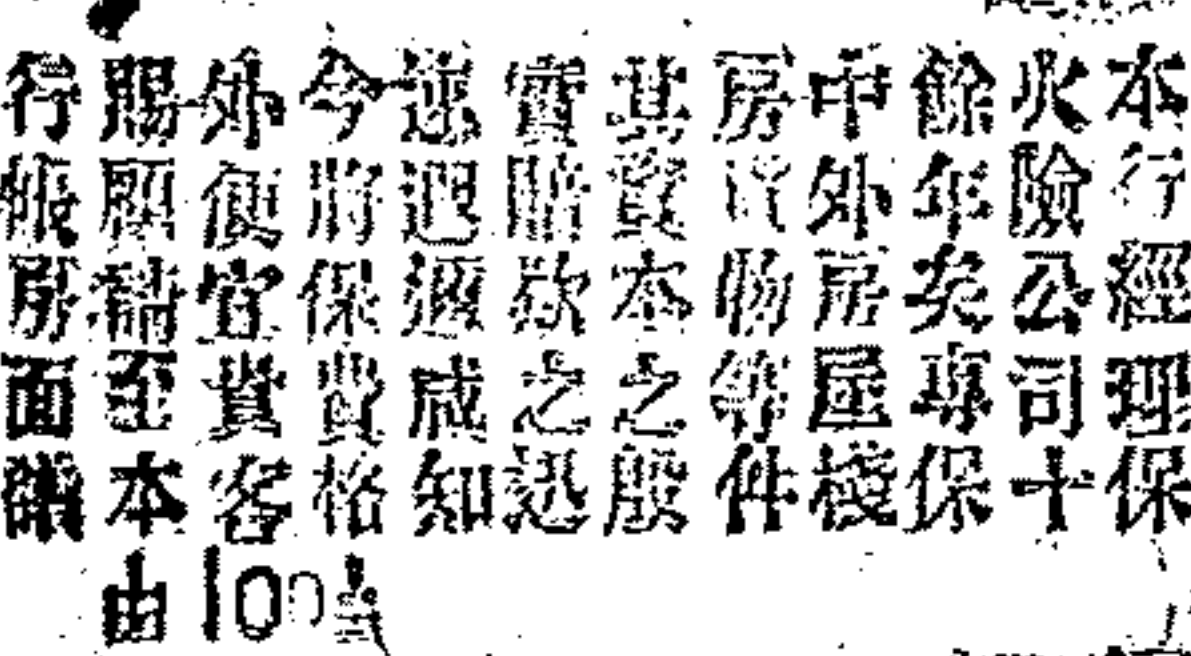 本行經理保
火險公司十
餘年矣專保
中外房屋棧
房貨物等件
其資本之殷
實賠款之迅
速遐邇咸知
今將保費格
外便宜貴客
賜顧請至本
行帳房面議
由100